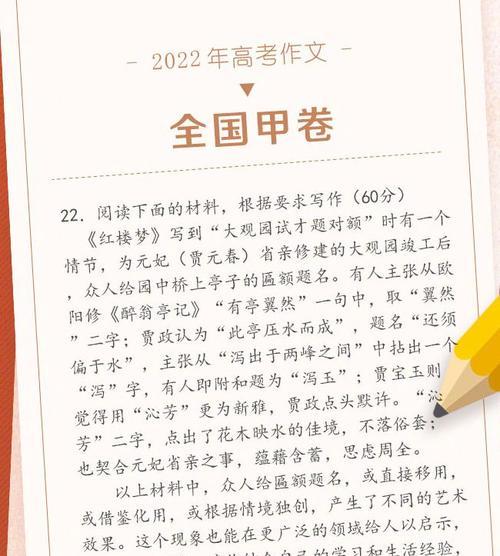 - 2022年高考作文 -
全国甲卷
22. 阅读下面的材料，根据要求写作（60分）
《红楼梦》写到“大观园试才题对额”时有一个
情节，为元妃（贾元春）省亲修建的大观园竣工后
，众人给园中桥上亭子的匾额题名。有人主张从欧
阳修《醉翁亭记》“有亭翼然”一句中，取“翼然
”二字；贾政认为“此亭压水而成”，题名“还须
偏于水”，主张从“泻出于两峰之间”中拈出一个
“泻”字，有人即附和题为“泻玉”；贾宝玉则
觉得用“沁芳”更为新雅，贾政点头默许。“沁
芳”二字，点出了花木映水的佳境，不落俗套；
也契合元妃省亲之事，蕴藉含蓄，思虑周全。
以上材料中，众人给匾额题名，或直接移用，
或借鉴化用，或根据情境独创，产生了不同的艺术
效果。这个现象也能在更广泛的领域给人以启示，
自己的学习和生活经验，